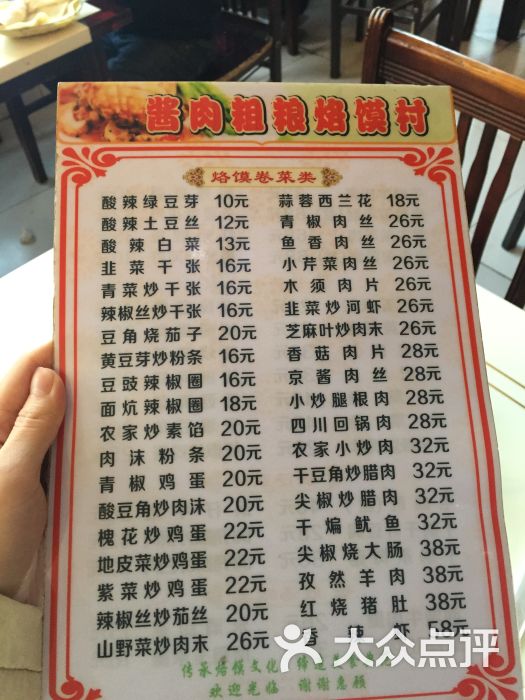 酱肉粗粮烙馍村
烙馍卷菜类
酸辣绿豆芽 10元
酸辣土豆丝 12元
酸辣白菜 13元
韭菜千张 16元
青菜炒千张 16元
辣椒丝炒千张 16元
豆角烧茄子 20元
黄豆芽炒粉条 16元
豆豉辣椒圈 16元
面炕辣椒圈 18元
农家炒素馅 20元
肉沫粉条 20元
青椒鸡蛋 20元
酸豆角炒肉沫 20元
槐花炒鸡蛋 22元
地皮菜炒鸡蛋 22元
紫菜炒鸡蛋 22元
辣椒丝炒茄丝 20元
山野菜炒肉末 26元
蒜蓉西兰花 18元
青椒肉丝 26元
鱼香肉丝 26元
小芹菜肉丝 26元
木须肉片 26元
韭菜炒河虾 26元
芝麻叶炒肉末 26元
香菇肉片 28元
京酱肉丝 28元
小炒腿根肉 28元
四川回锅肉 28元
农家小炒肉 32元
干豆角炒腊肉 32元
尖椒炒腊肉 32元
干煸鱿鱼 32元
尖椒烧大肠 38元
孜然羊肉 38元
红烧猪肚 38元
香 虾 58元
传承烙馍文化
欢迎光临 谢谢惠顾
大众点评